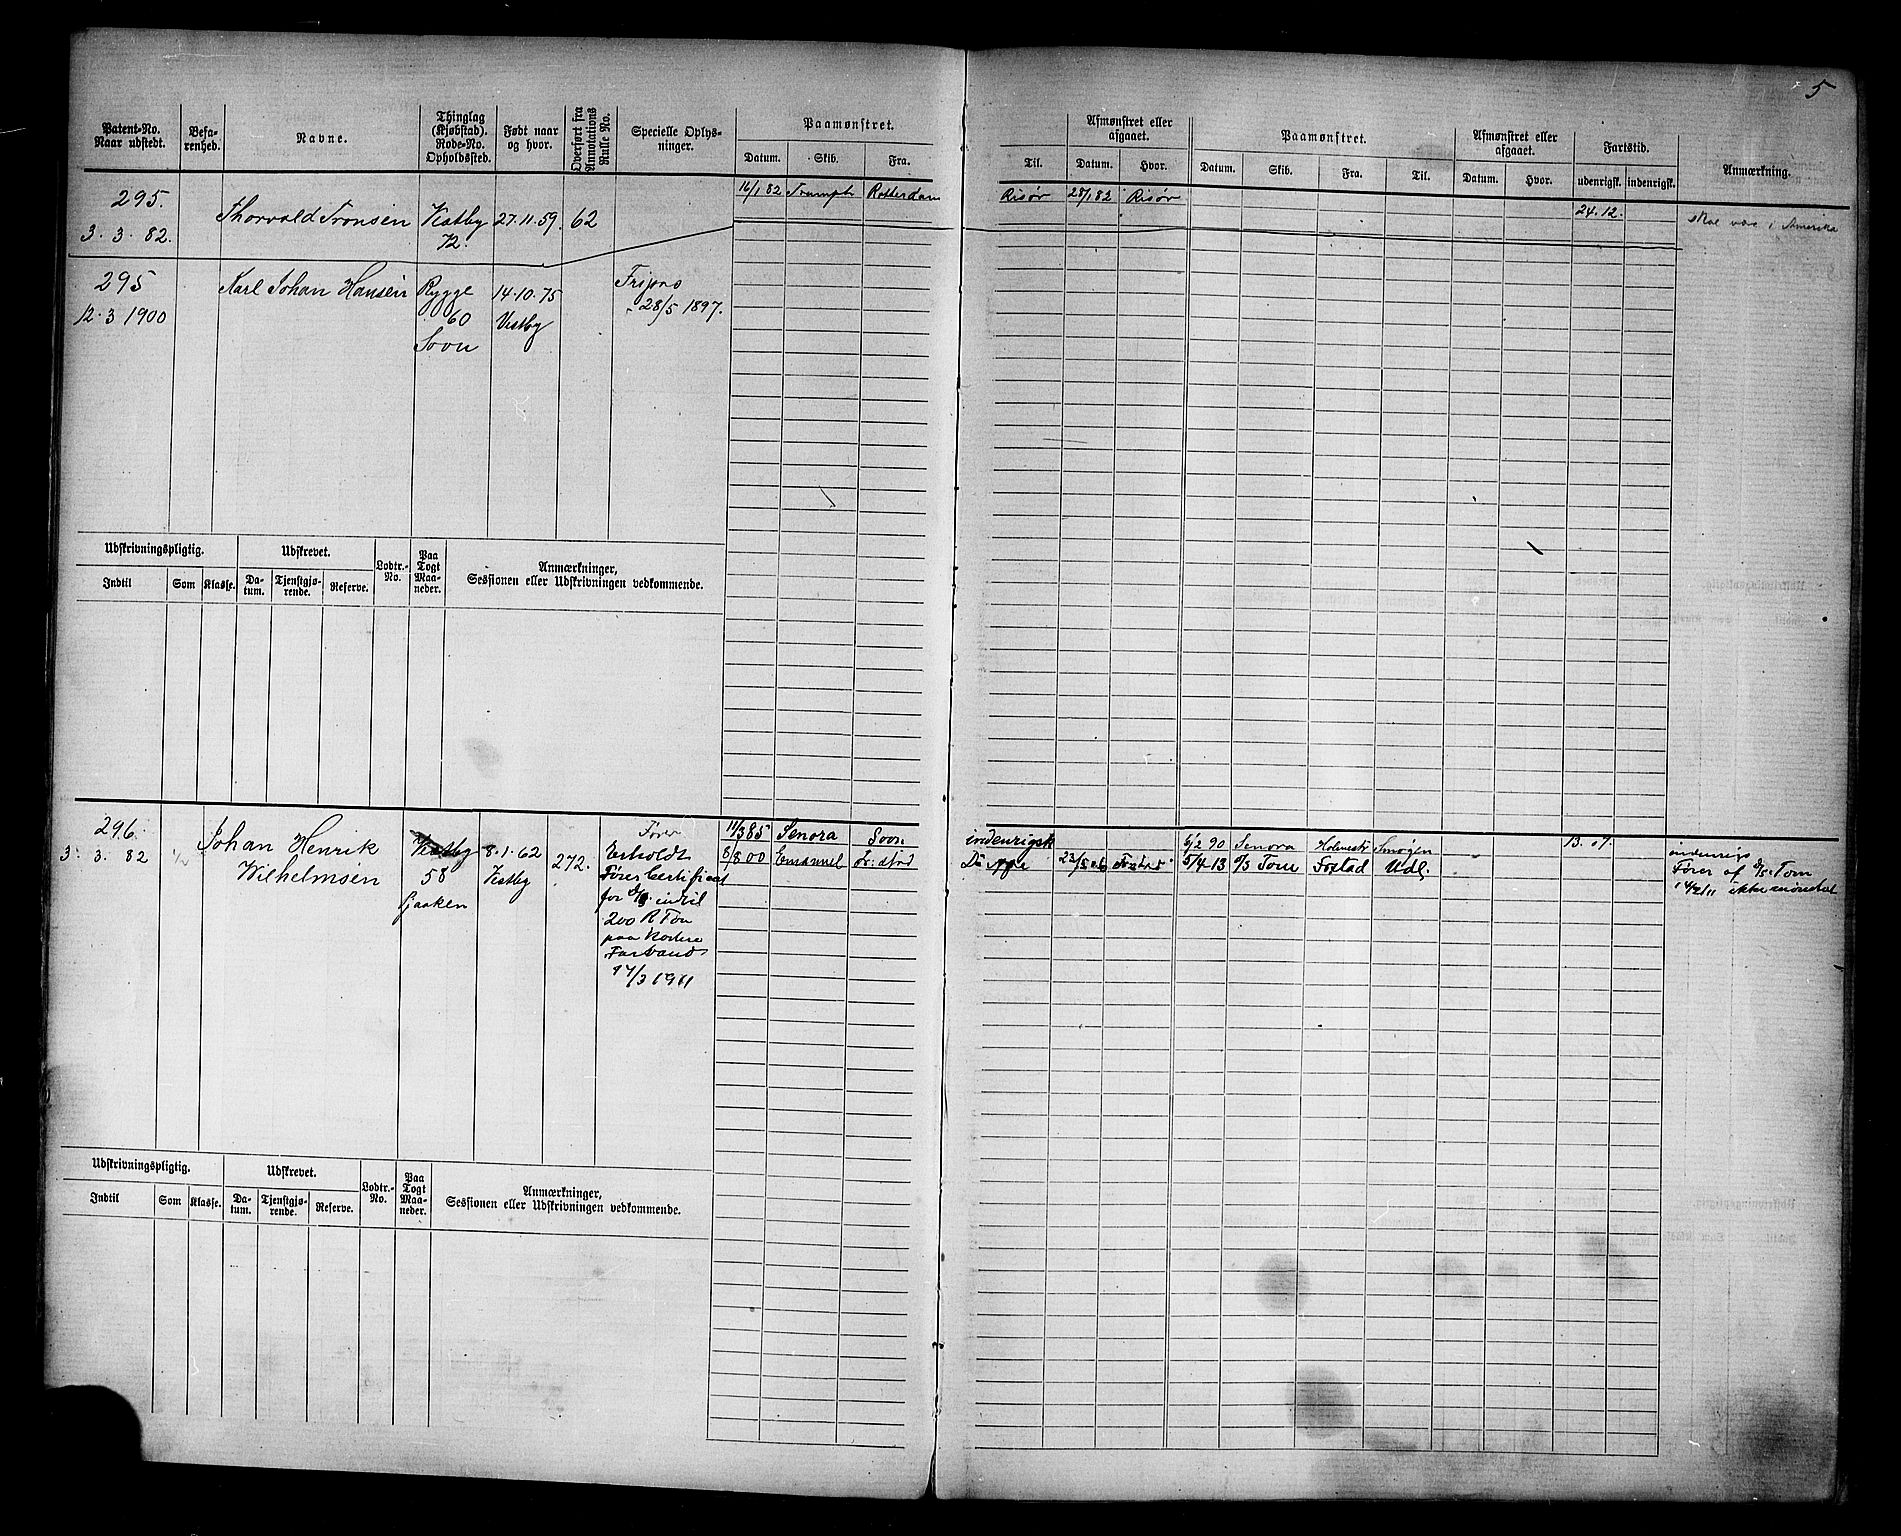 5
Patent-No.
Naar udstedt.
Befa-
renhed.
Navne.
Thinglag
(Kjøbstad).
Rode-No.
Opholdssted.
Født naar
og hvor.
Overført fra
Annotations
Rulle No.
Specielle Oplys-
ninger.
Paamønstret.
Datum. Skib. Fra.
Til.
Afmønstret eller
afgaaet.
Datum. Hvor.
Paamønstret.
Datum. Skib. Fra. Til.
Afmønstret eller
afgaaet.
Datum. Hvor.
Fartstid.
udenrigsk. indenrigsk.
Anmærkning.
295.
3. 3. 82.
Thorvald Tronsen
Vestby
72.
27.11.59.
62
16/1 82 Trumph Rotterdam
Risør 28/1 82 Risør
24.12.
skal være i Amerika
295
12.3 1900
Karl Johan Hansen
Rygge
60
Soon
14.10.75
Vestby
28/5 1897.
Udskrivningspligtig.
Indtil Som Klasse.
Udskrevet.
Da-
tum.
Tjenstgjø-
rende.
Reserve.
Lodtr.-
No.
Paa
Togt
Maa-
neder.
Anmærkninger,
Sessionen eller Udskrivningen vedkommende.
296.
3. 3. 82
1/2
Johan Henrik
Wilhelmsen
Vestby
58
8.1.62
Vestby
272.
Fører
Erholdt
Fører Certificat
for D/S indtil
200 R Ton
paa kortere
Farvand
17/3 1911
11/3 85 Senora Soon
8/8 00 Emanuel
indenrigsk
6/2 90 Senora Holmestr Smøgen
5/4 13 D/S Tom Udl.
13. 07.
indenrigs
Fører af D/S Tom
14/2 11 ikke mønstret
Udskrivningspligtig.
Indtil Som Klasse.
Udskrevet.
Da-
tum.
Tjenstgjø-
rende.
Reserve.
Lodtr.-
No.
Paa
Togt
Maa-
neder.
Anmærkninger,
Sessionen eller Udskrivningen vedkommende.